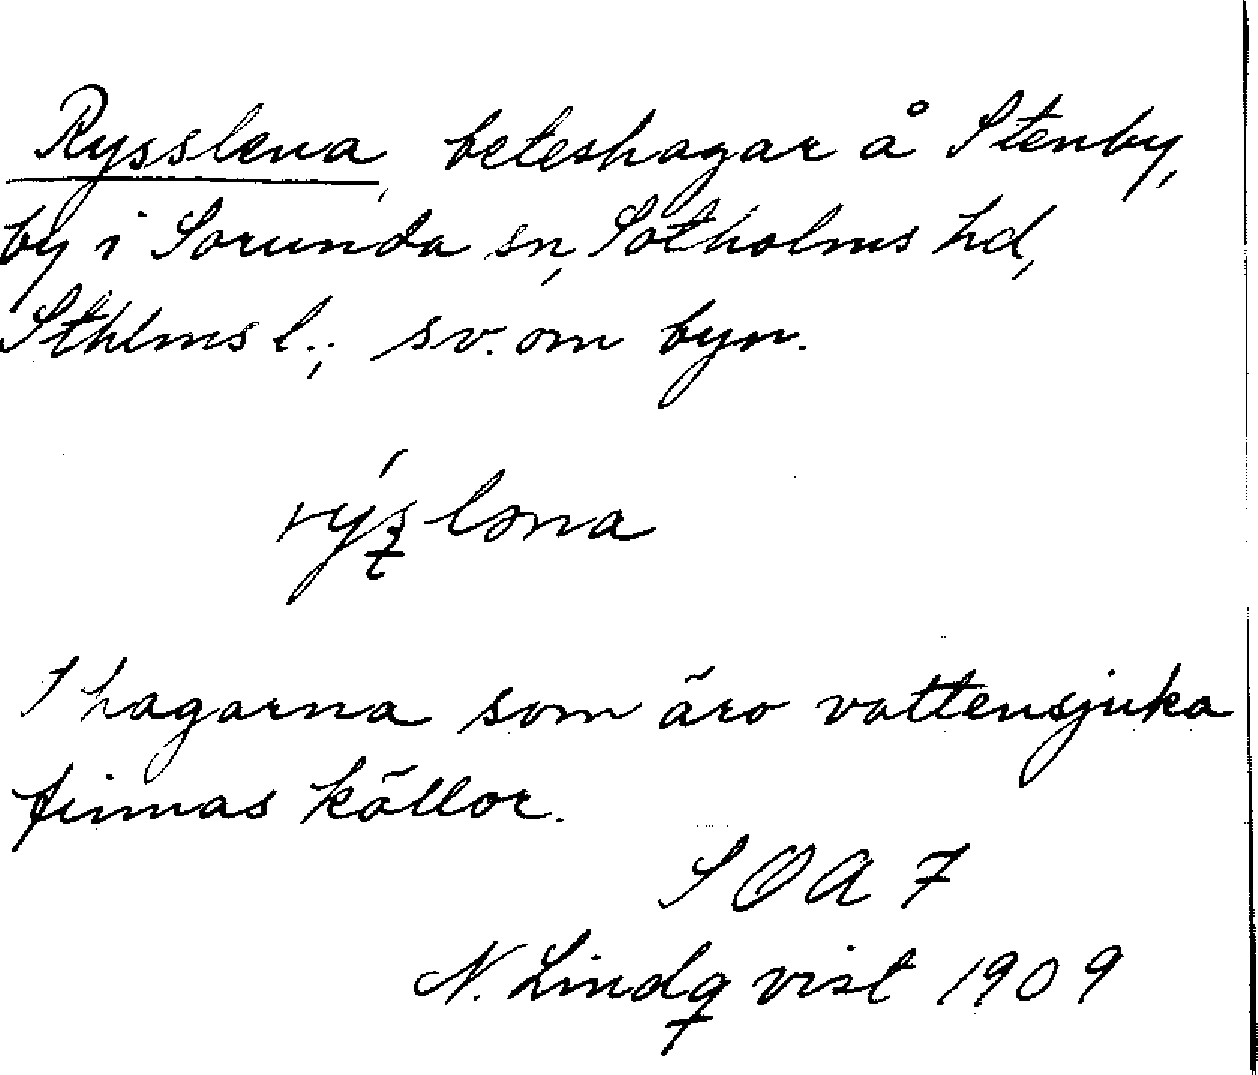 Rysslena, beteshagar å Stenby,
by i Sorunda sn, Sotholms hd,
Sthlms l.; sv. om byn.
I hagarna som äro vattensjuka
finnas källor.
SOA 7
N. Lindqvist 1909